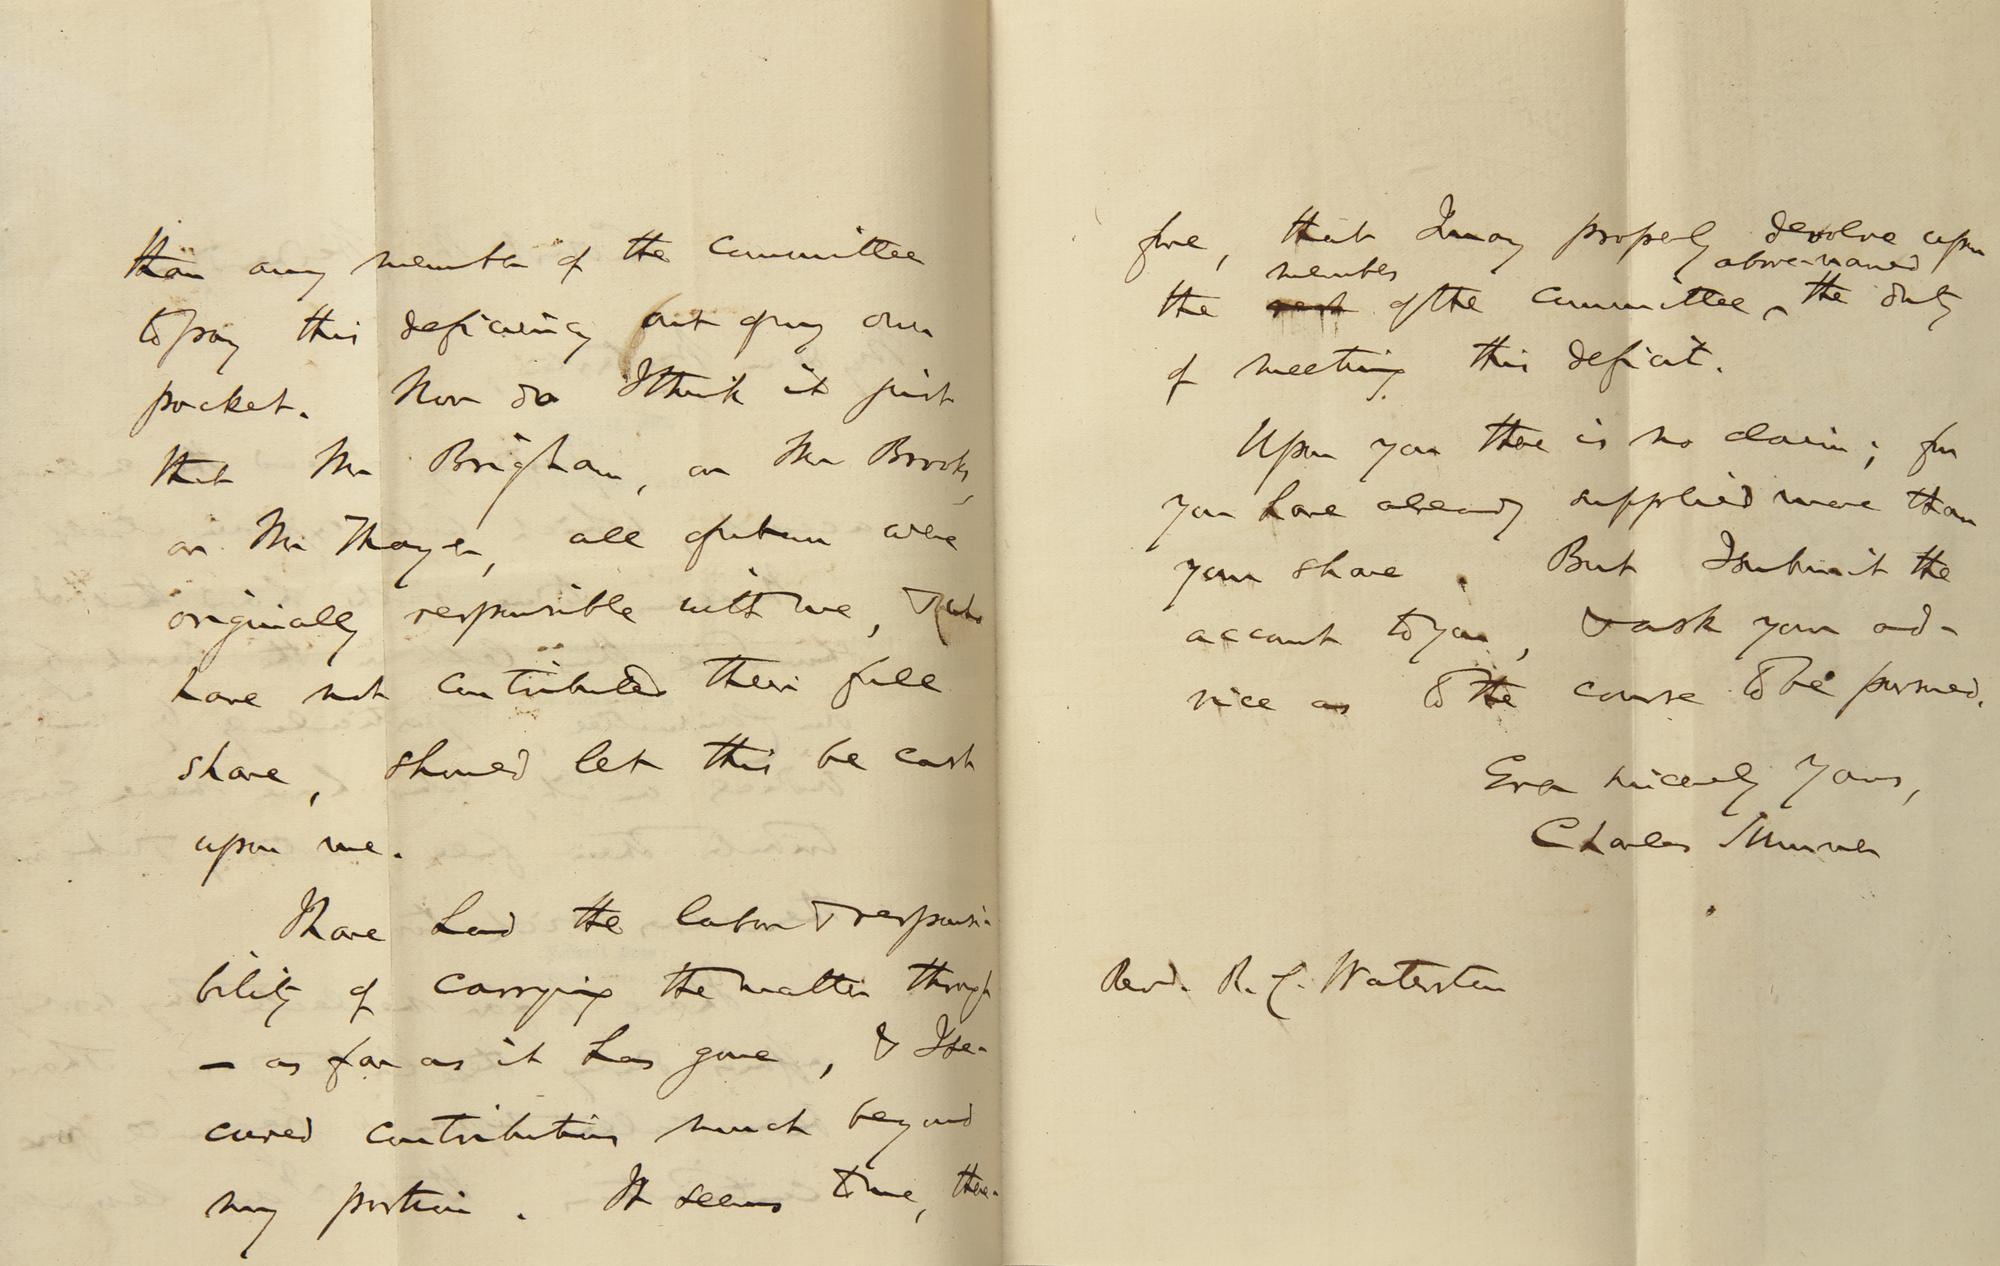 than any member of the committee
to pay this deficiency out of my own
pocket. Nor do I think it just
that Mr Brigham, or Mr Brooks,
or Mr Thayer, all of whom were
originally responsible with me, & who
have not contributed their full
share, should let this be cast
upon me.
I have had the labor & responsi-
bility of carrying the matter through
— as far as it has gone, & I se-
cured contributions much beyond
my portion. It seems to me, there-
fore, that I may properly devolve upon
member above-named
the rest of the committee ‸ the duty
of meeting this deficit.
Upon you there is no claim; for
you have already supplied more than
your share. But I submit the
account to you, & ask your ad-
vice as to the course to be pursued.
Ever sincerely Yours,
Charles Sumner
Revd. R. C. Waterston